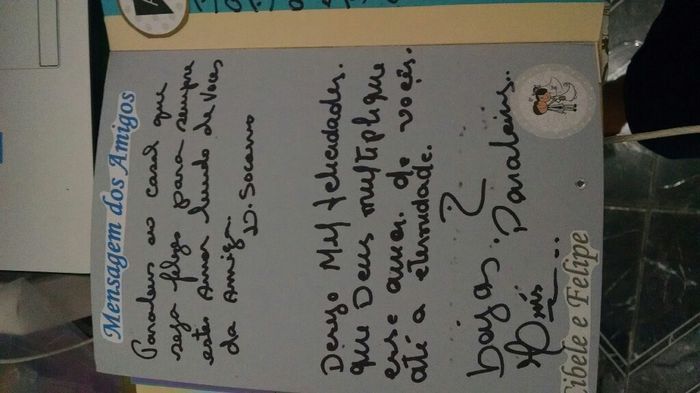 Mensagem dos Amigos
Parabens ao casal que
seja feliz para sempre
este amor lindo de voces
da amiga.
D. Socorro
Desejo Mil felicidades.
que Deus multiplique
esse amor de vocês.
até a eternidade.
Parabéns..
Cibele e Felipe